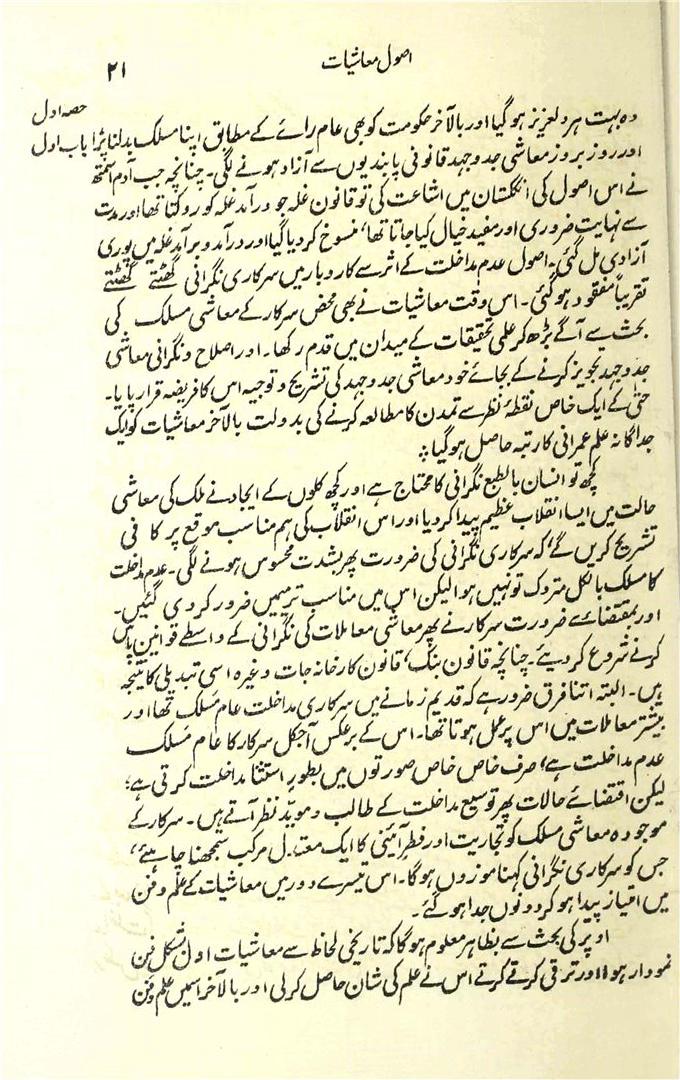 اصول معاشیات
۲۱
حصہ اول
باب اول
وہ بہت ہردلعزیز ہوگیا اور بالآخر حکومت کو بھی عام رائے کے مطابق اپنا مسلک بدلنا پڑا
اور روز بروز معاشی جدوجہد قانونی پابندیوں سے آزاد ہونے لگی۔ چنانچہ جب آدم اسمتھ
نے اس اصول کی انگلستان میں اشاعت کی تو قانون غلہ جو درآمد غلہ کو روکتا تھا اور مدت
سے نہایت ضروری اور مفید خیال کیا جاتا تھا، منسوخ کردیا گیا اور درآمد و برآمد غلہ میں پوری
آزادی مل گئی۔ اصول عدم مداخلت کے اثر سے کاروبار میں سرکاری نگرانی گھٹتے گھٹتے
تقریباً مفقود ہوگئی۔ اس وقت معاشیات نے بھی محض سرکار کے معاشی مسلک کی
بحث سے آگے بڑھ کر علمی تحقیقات کے میدان میں قدم رکھا۔ اور اصلاح و نگرانی معاشی
جدوجہد تجویز کرنے کے بجائے خود معاشی جدوجہد کی تشریح و توجیہ اس کا فریضہ قرار پایا۔
حتیٰ کے ایک خاص نقطۂ نظر سے تمدن کا مطالعہ کرنے کی بدولت بالآخر معاشیات کو ایک
جداگانہ علم عمرانی کا رتبہ حاصل ہوگیا۔
کچھ تو انسان بالطبع نگرانی کا محتاج ہے اور کچھ کلوں کے ایجاد نے ملک کی معاشی
حالت میں ایسا انقلاب عظیم پیدا کردیا اور اس انقلاب کی ہم مناسب موقع پر کافی
تشریح کریں گے، کہ سرکاری نگرانی کی ضرورت پھر بشدت محسوس ہونے لگی۔ عدم مداخلت
کا مسلک بالکل متروک تو نہیں ہوا لیکن اس میں مناسب ترمیمیں ضرور کردی گئیں۔
اور بمقتضائے ضرورت سرکار نے پھر معاشی معاملات کی نگرانی کے واسطے قوانین پاس
کرنے شروع کردیئے۔ چنانچہ قانون بنک، قانون کارخانہ جات وغیرہ اسی تبدیلی کا نتیجہ
ہیں۔ البتہ اتنا فرق ضرور ہے کہ قدیم زمانے میں سرکاری مداخلت عام مسلک تھا اور
بیشتر معاملات میں اس پر عمل ہوتا تھا۔ اس کے برعکس آجکل سرکار کا عام مسلک
عدم مداخلت ہے، صرف خاص خاص صورتوں میں بطور استثنا مداخلت کرتی ہے؛
لیکن اقتضائے حالات پھر توسیع مداخلت کے طالب و موید نظر آتے ہیں۔ سرکار کے
موجودہ معاشی مسلک کو تجاریت اور فطر آئینی کا ایک معتدل مرکب سمجھنا چاہئے،
جس کو سرکاری نگرانی کہنا موزوں ہوگا۔ اس تیسرے دور میں معاشیات کے علم و فن
میں امتیاز پیدا ہوکر دونوں جدا ہوگئے۔
اوپر کی بحث سے بظاہر معلوم ہوگا کہ تاریخی لحاظ سے معاشیات اول بشکل فن
نمودار ہوا اور ترقی کرتے کرتے اس نے علم کی شان حاصل کرلی اور بالآخر اسمیں علم و فن